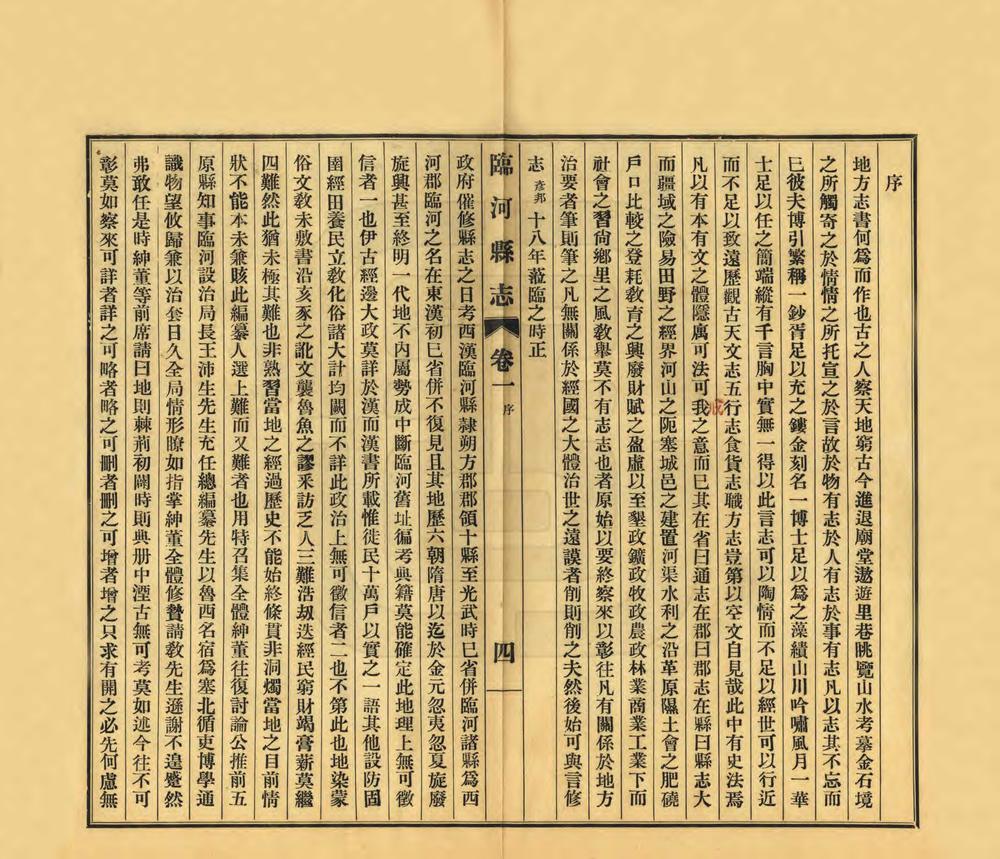 序
地方志書何爲而作也古之人察天地窮古今進退廟堂遨遊里巷眺覽山水考摹金石境
之所觸寄之於情情之所托宣之於言故於物有志於人有志於事有志凡以志其不忘而
已彼夫博引繁稱一鈔胥足以充之鏤金刻名一博士足以爲之藻繢山川吟嘯風月一華
士足以任之簡端縱有千言胸中實無一得以此言志可以陶情而不足以經世可以行近
而不足以致遠歷觀古天文志五行志食貨志職方志豈第以空文自見哉此中有史法焉
凡以有本有文之體隱厲可法可我戒之意而已其在省曰通志在郡曰郡志在縣曰縣志大
而疆域之險易田野之經界河山之阨塞城邑之建置河渠水利之沿革原隰土會之肥磽
戶口比較之登耗敎育之興廢財賦之盈虛以至墾政鑛政牧政農政林業商業工業下而
社會之習尙鄉里之風敎舉莫不有志志也者原始以要終察來以彰往凡有關係於地方
治要者筆則筆之凡無關係於經國之大體治世之遠謨者削則削之夫然後始可與言修
志彥邦十八年蒞臨之時正
臨河縣志 卷一 序 四
政府催修縣志之日考西漢臨河縣隸朔方郡郡領十縣至光武時已省併臨河諸縣爲西
河郡臨河之名在東漢初已省併不復見且其地歷六朝隋唐以迄於金元忽夷忽夏旋廢
旋興甚至終明一代地不內屬勢成中斷臨河舊址徧考典籍莫能確定此地理上無可徵
信者一也伊古經邊大政莫詳於漢而漢書所載惟徙民十萬戶以實之一語其他設防固
圉經田養民立敎化俗諸大計均闕而不詳此政治上無可徵信者二也不第此也地染蒙
俗文敎未敷書沿亥豕之訛文襲魯魚之謬釆訪乏人三難浩刼迭經民窮財竭膏薪莫繼
四難然此猶未極其難也非熟習當地之經過歷史不能始終條貫非洞燭當地之目前情
狀不能本末兼賅此編纂人選上難而又難者也用特召集全體紳董往復討論公推前五
原縣知事臨河設治局長王沛生先生充任總編纂先生以魯西名宿爲塞北循吏博學通
識物望攸歸兼以治套日久全局情形瞭如指掌紳董全體修贄請敎先生遜謝不遑蹙然
弗敢任是時紳董等前席請曰地則棘荊初闢時則典册中湮古無可考莫如述今往不可
彰莫如察來可詳者詳之可略者略之可刪者刪之可增者增之只求有開之必先何慮無